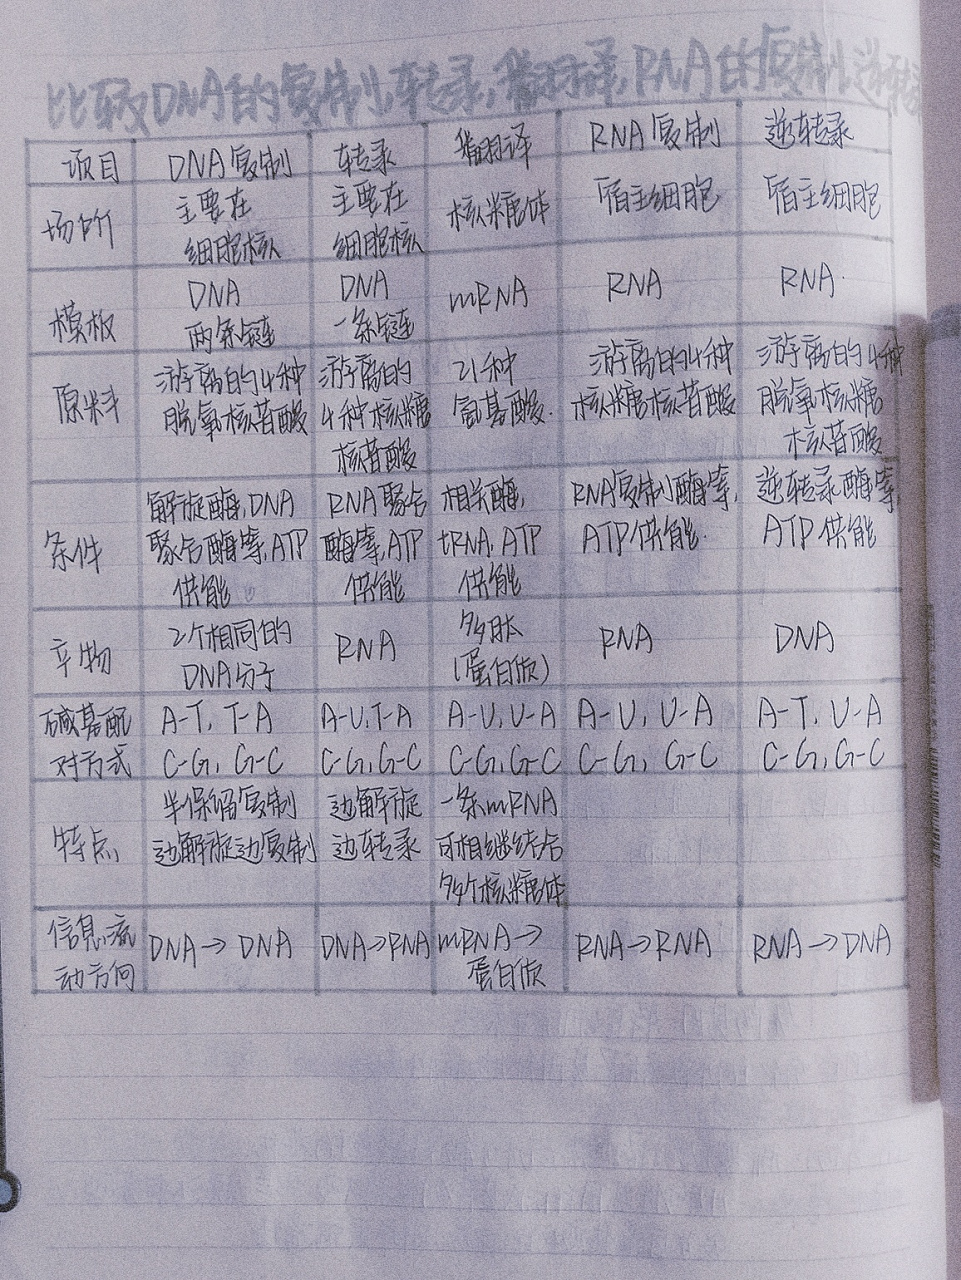 比较DNA的复制,转录,翻译,RNA的复制,逆转录
项目 DNA复制 转录 翻译 RNA复制 逆转录
场所 主要在细胞核 主要在细胞核 核糖体 宿主细胞 宿主细胞
模板 DNA两条链 DNA一条链 mRNA RNA RNA
原料 游离的4种脱氧核苷酸 游离的4种核糖核苷酸 21种氨基酸. 游离的4种核糖核苷酸 游离的4种脱氧核糖核苷酸
条件 解旋酶,DNA聚合酶等,ATP供能 RNA聚合酶等,ATP供能 相关酶,tRNA,ATP供能 RNA复制酶等,ATP供能. 逆转录酶等,ATP供能
产物 2个相同的DNA分子 RNA 多肽(蛋白质) RNA DNA
碱基配对方式 A-T, T-A C-G, G-C A-U,T-A C-G,G-C A-U,U-A C-G,G-C A-U, U-A C-G, G-C A-T, U-A C-G, G-C
特点 半保留复制边解旋边复制 边解旋边转录 一条mRNA可相继结合多个核糖体
信息流动方向 DNA→DNA DNA→RNA mRNA→蛋白质 RNA→RNA RNA→DNA